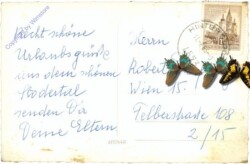 Recht schöne
Urlaubsgrüße
aus dem schönen
senden Dir
Deine Eltern.
Herrn
Robert
Wien 15.
Felberstraße 108
2/15